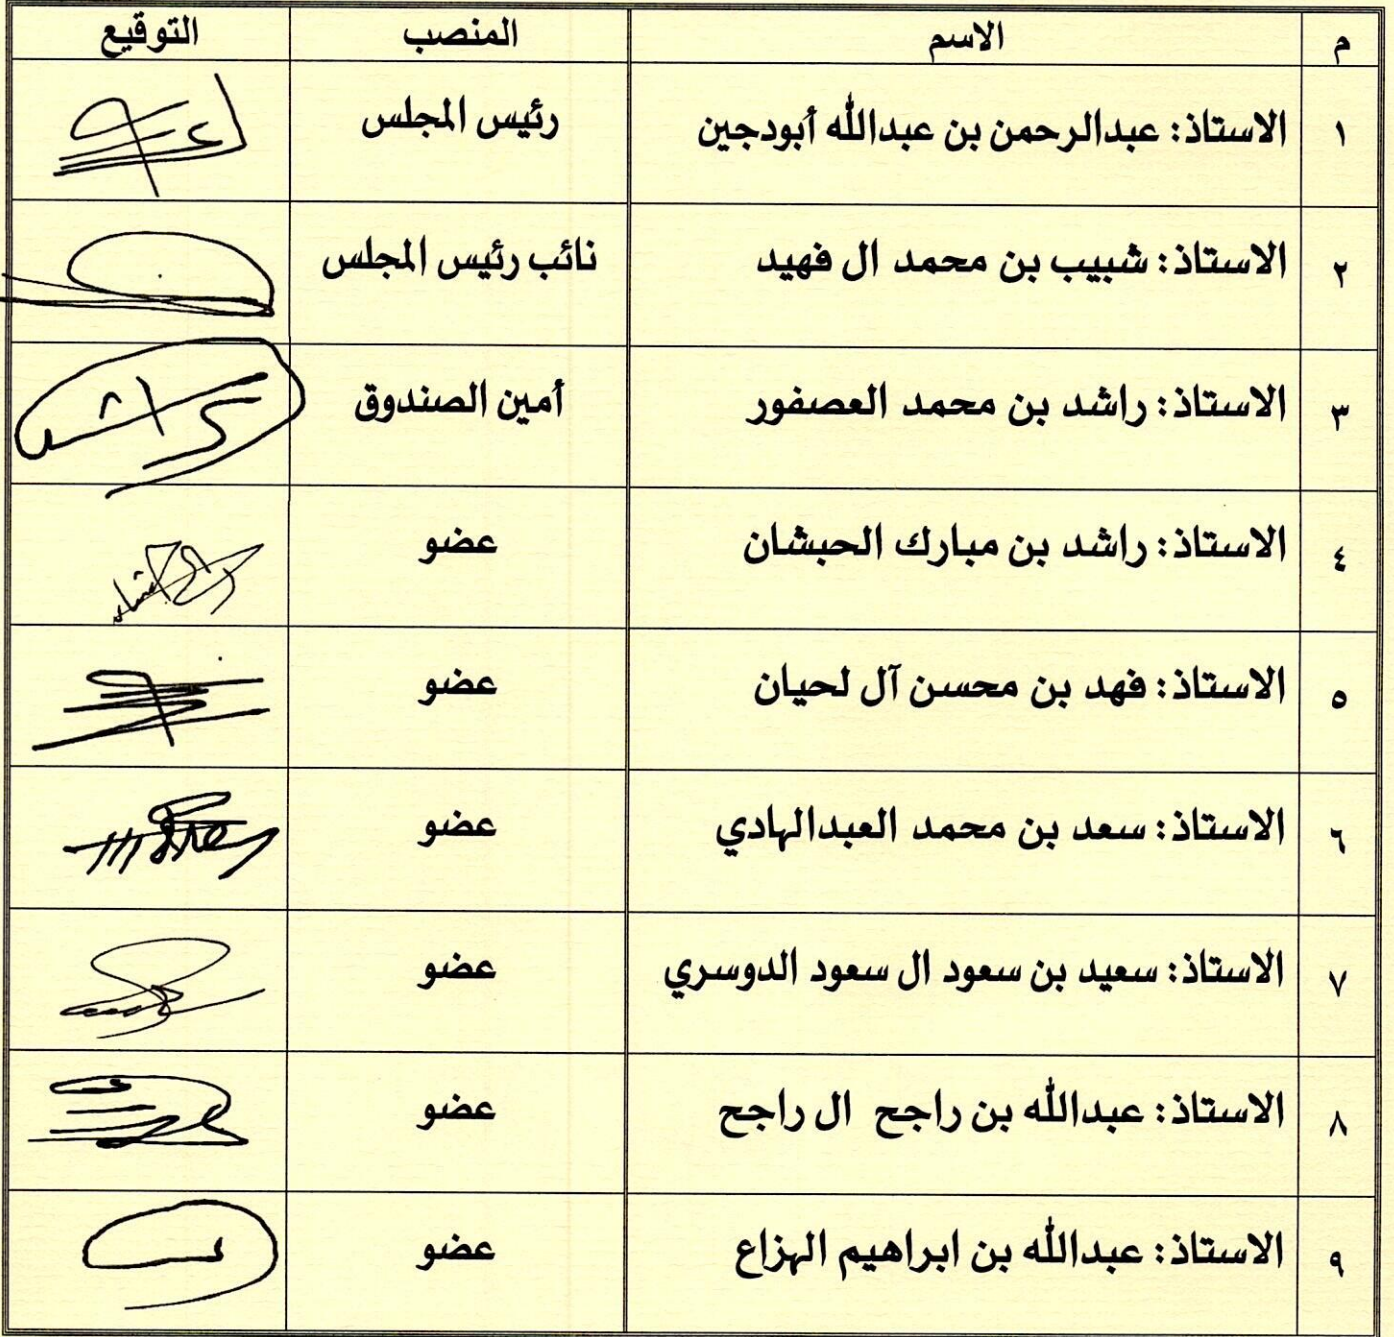 م الاسم المنصب التوقيع
١ الاستاذ: عبدالرحمن بن عبدالله أبودجين رئيس المجلس
٢ الاستاذ: شبيب بن محمد ال فهيد نائب رئيس المجلس
٣ الاستاذ: راشد بن محمد العصفور أمين الصندوق
٤ الاستاذ: راشد بن مبارك الحبشان عضو
٥ الاستاذ: فهد بن محسن آل لحيان عضو
٦ الاستاذ: سعد بن محمد العبدالهادي عضو
٧ الاستاذ: سعيد بن سعود ال سعود الدوسري عضو
٨ الاستاذ: عبدالله بن راجح ال راجح عضو
٩ الاستاذ: عبدالله بن ابراهيم الهزاع عضو